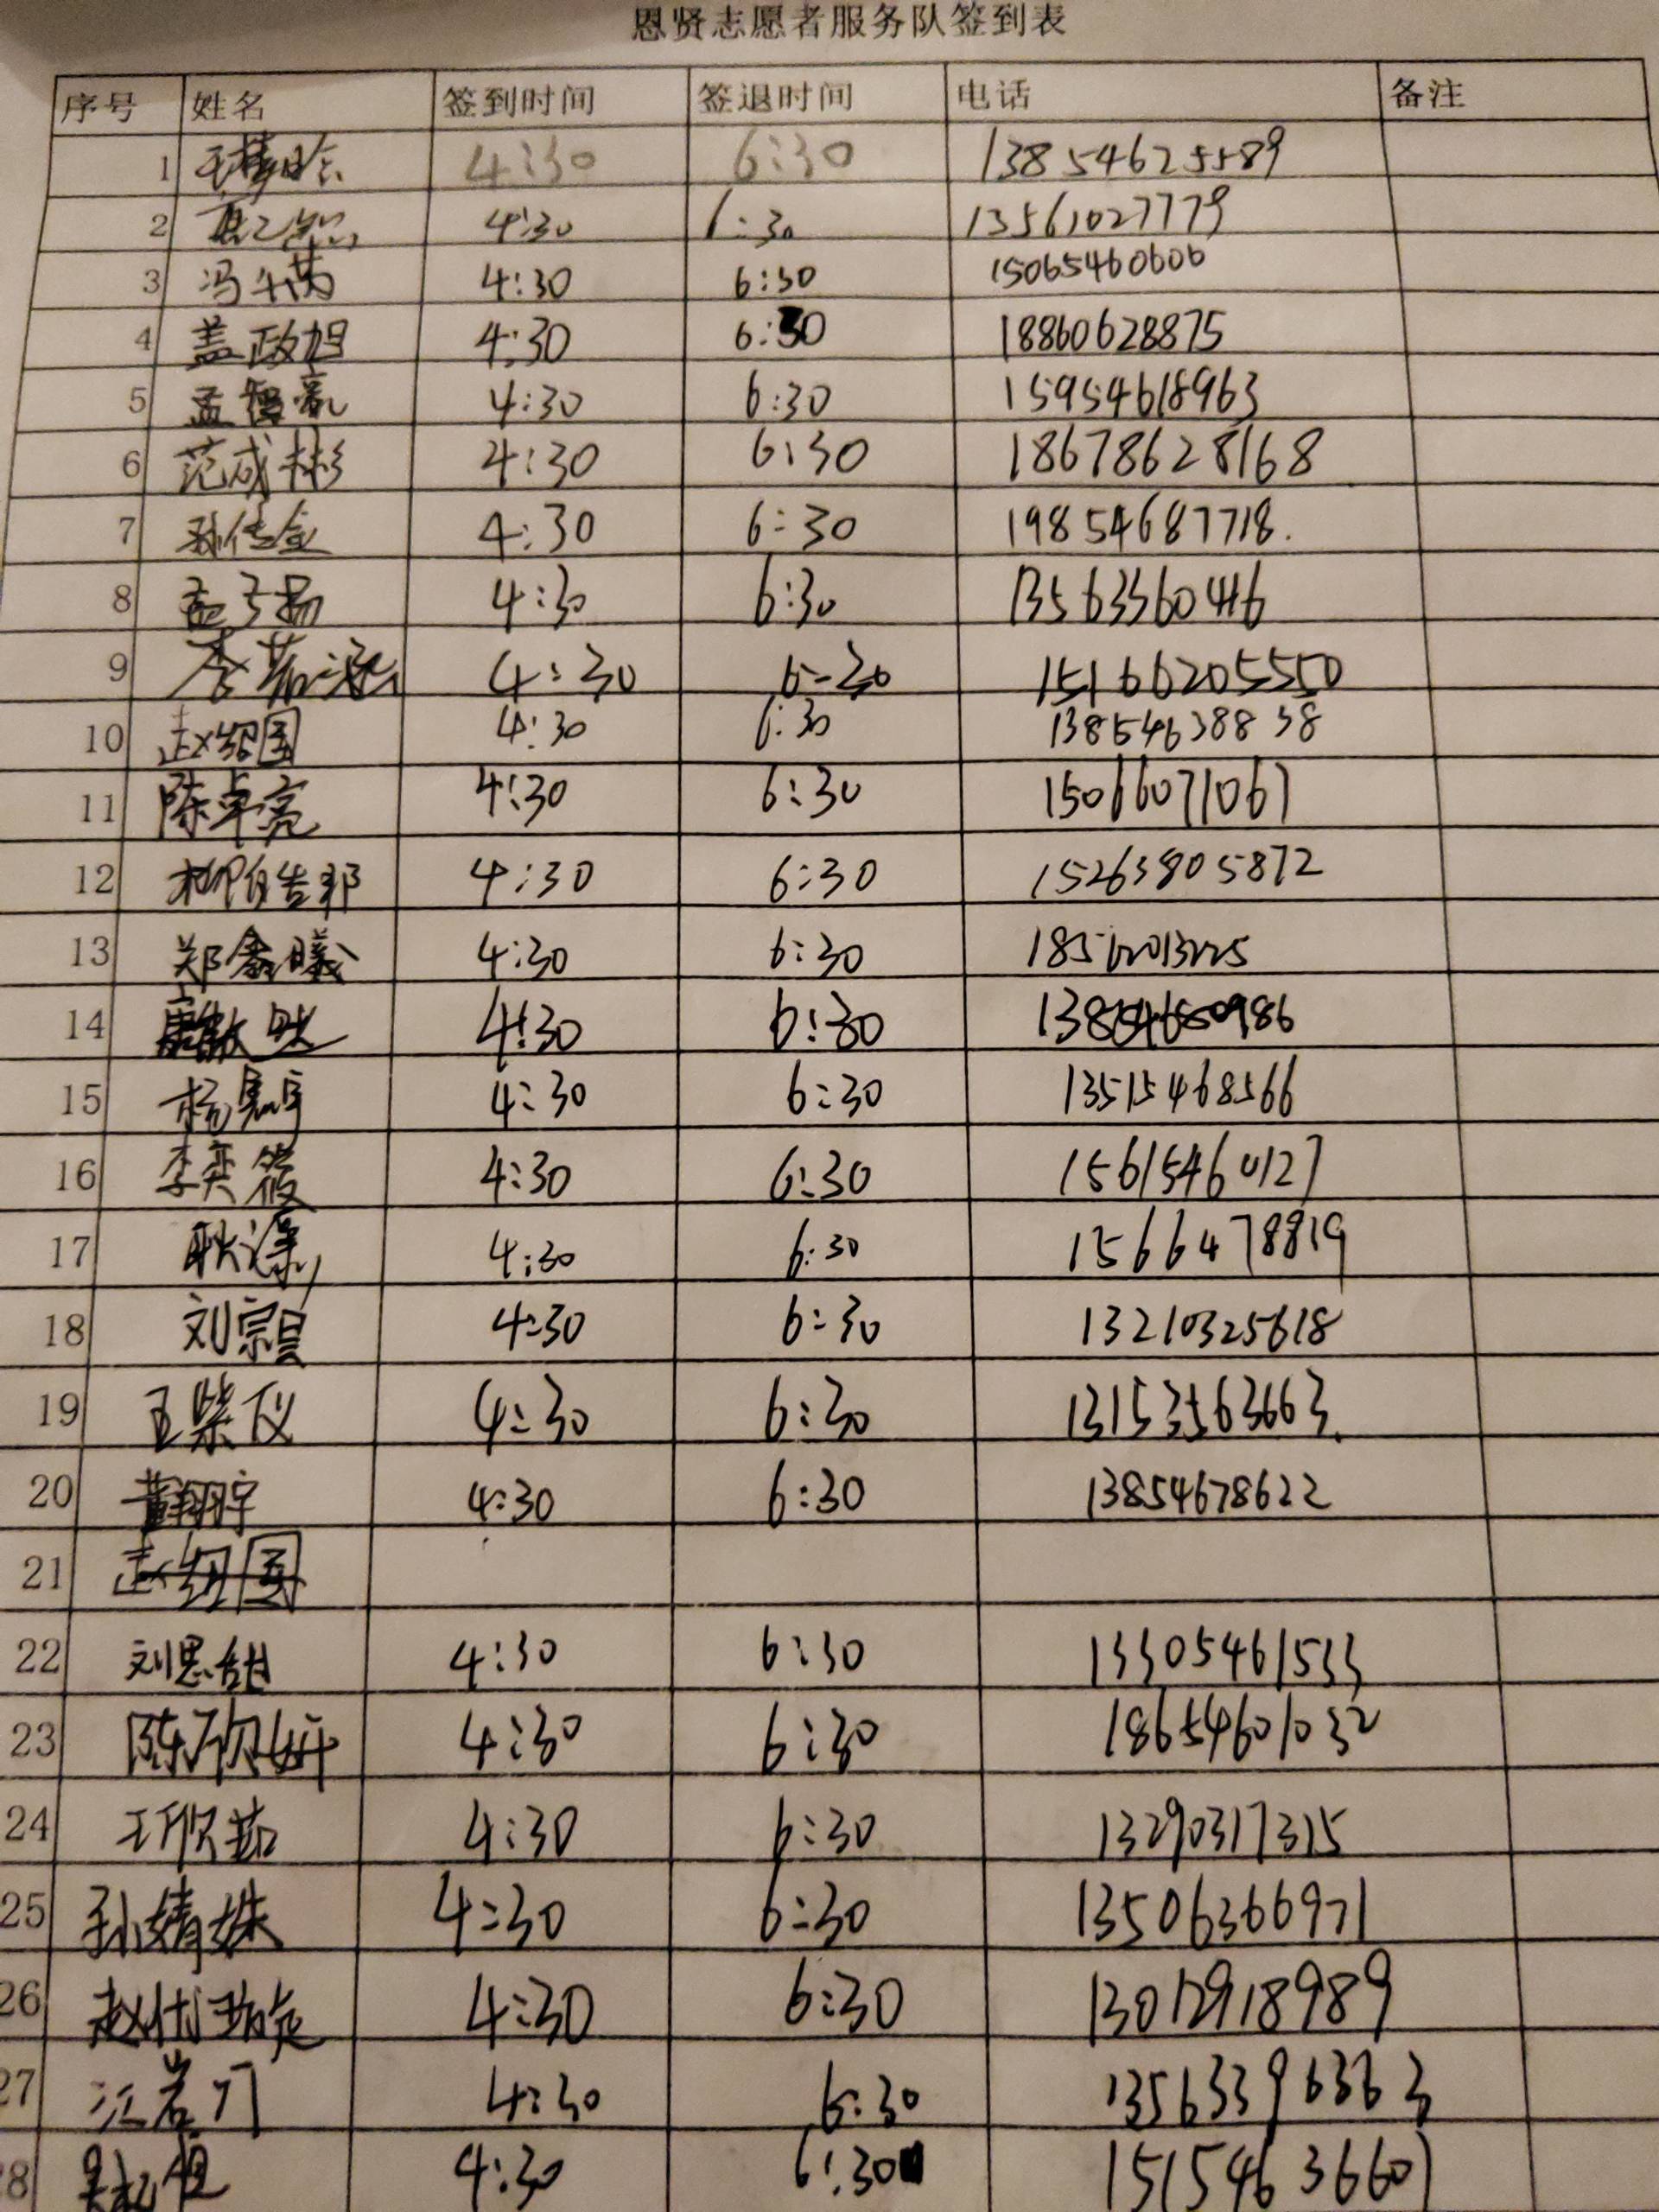 恩贤志愿者服务队签到表
序号 姓名 签到时间 签退时间 电话 备注
1 4:30 6:30 13854625589
2 4:30 6:30 13561027779
3 冯 4:30 6:30 15065460606
4 盖政旭 4:30 6:30 18860628875
5 孟智豪 4:30 6:30 15954618963
6 范成彬 4:30 6:30 18678628168
7 孙传金 4:30 6:30 19854687718.
8 孟子扬 4:30 6:30 13563360416
9 李 4:30 6-30 15166205550
10 赵绍国 4:30 6:30 13854638838
11 陈卓亮 4:30 6:30 15066071067
12 4:30 6:30 15263805872
13 郑鑫曦 4:30 6:30
14 4:30 6:30
15 杨 4:30 6:30 13515468566
16 李奕筱 4:30 6:30 15615460127
17 耿 4:30 6:30 1566478819
18 刘宗昊 4:30 6:30 13210325618
19 王紫仪 4:30 6:30 13153563663.
20 董翔宇 4:30 6:30 13854678622
21 赵绍国
22 刘思甜 4:30 6:30 13305461533
23 陈 妍 4:30 6:30 18654601032
24 王欣茹 4:30 6:30 13290317315
25 孙婧姝 4:30 6:30 13506366971
26 赵 4:30 6:30 13012918989
27 江岩 4:30 6:30 13563396363
28 4:30 6:30 15154636601